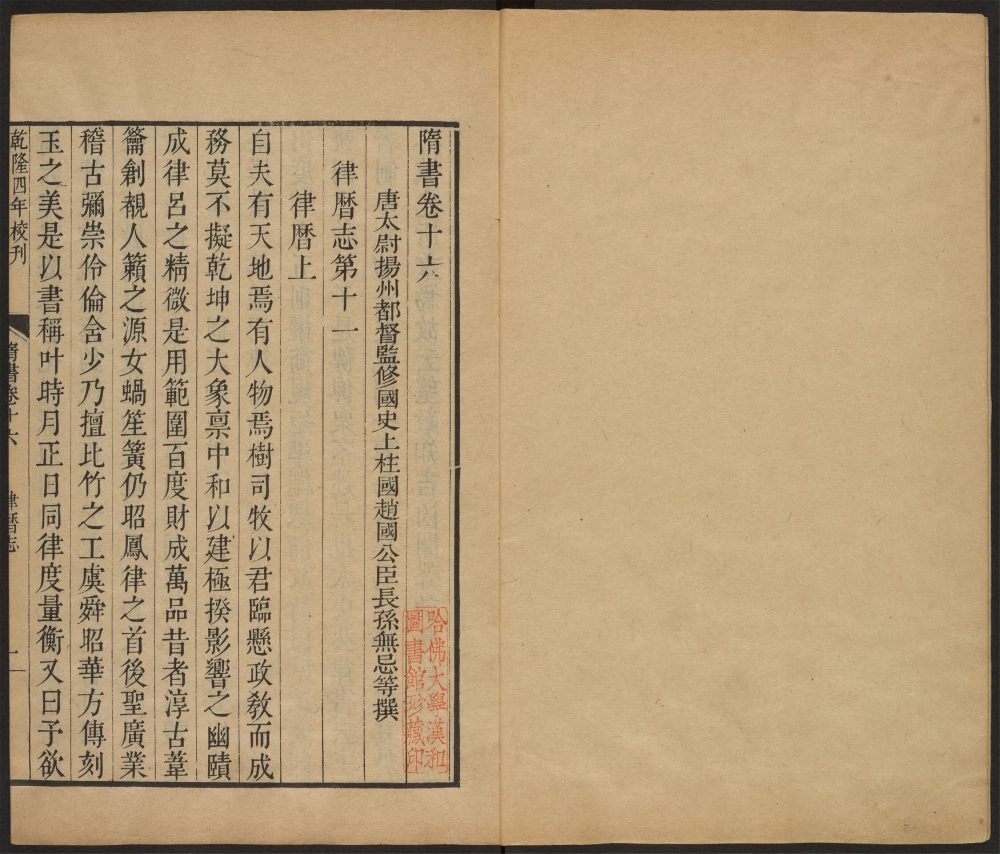 隋書卷十六
唐太尉揚州都督監修國史上柱國趙國公臣長孫無忌等撰
律曆志第十一
律曆上
自夫有天地焉有人物焉樹司牧以君臨懸政教而成
務莫不擬乾坤之大象稟中和以建極揆影響之幽賾
成律呂之精微是用範圍百度財成萬品昔者淳古葦
籥創覩人籟之源女蝸笙簧仍昭鳳律之首後聖廣業
稽古彌崇伶倫含少乃擅比竹之工虞舜昭華方傳刻
玉之美是以書稱叶時月正日同律度量衡又曰予欲
乾隆四年校刊
隋書卷十六 律曆志 一
哈佛大學漢和
圖書館珍藏印